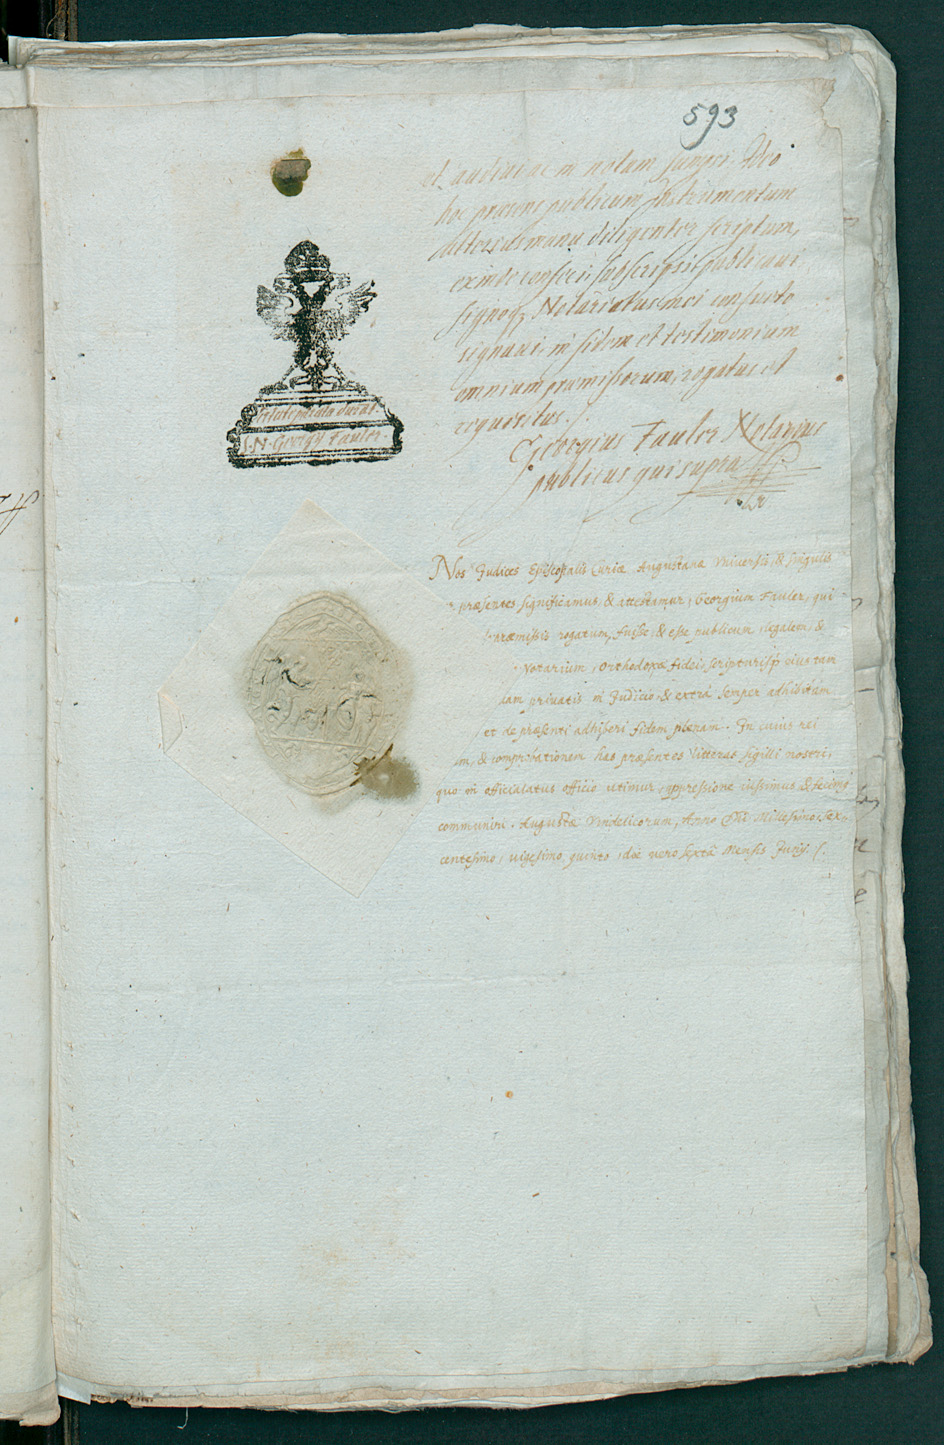 593
et audivi ac in notam sumpsi. Ideo
hoc praesens publicum Instrumentum
alterius manu diligenter scriptum,
exinde confeci, subscripsi, publicaui
signoq; Notariatus mei consueto
signaui, in fidem et testimonium
omnium praemissorum, rogatus et
requisitus ./.
Georgius Fauler Notarius
publicus qui supra
pietate durat.
S. N. Georgÿ Fauler.
Nos Judices Episcopalis Curiæ Augustanæ Vniuersis, & singulis
præsentes significamus, & attestamur, Georgium Fauler, qui
præmissis rogatum, fuisse, & esse publicum, legalem, &
Notarium, Orthodoxæ fidei, scripturisq; eius tam
uam priuatis in Judicio, & extrà semper adhibitam
et de præsenti adhiberi fidem plenam. In cuius rei
m, & comprobationem has præsentes Litteras sigilli nostri,
quo in officialatus officio utimur, impressione iussimus, & fecimus
communiri. Augustæ Vindelicorum, Anno Dni Millesimo, sex=
centesimo, uigesimo, quinto, die vero sextâ Mensis Junÿ. /.